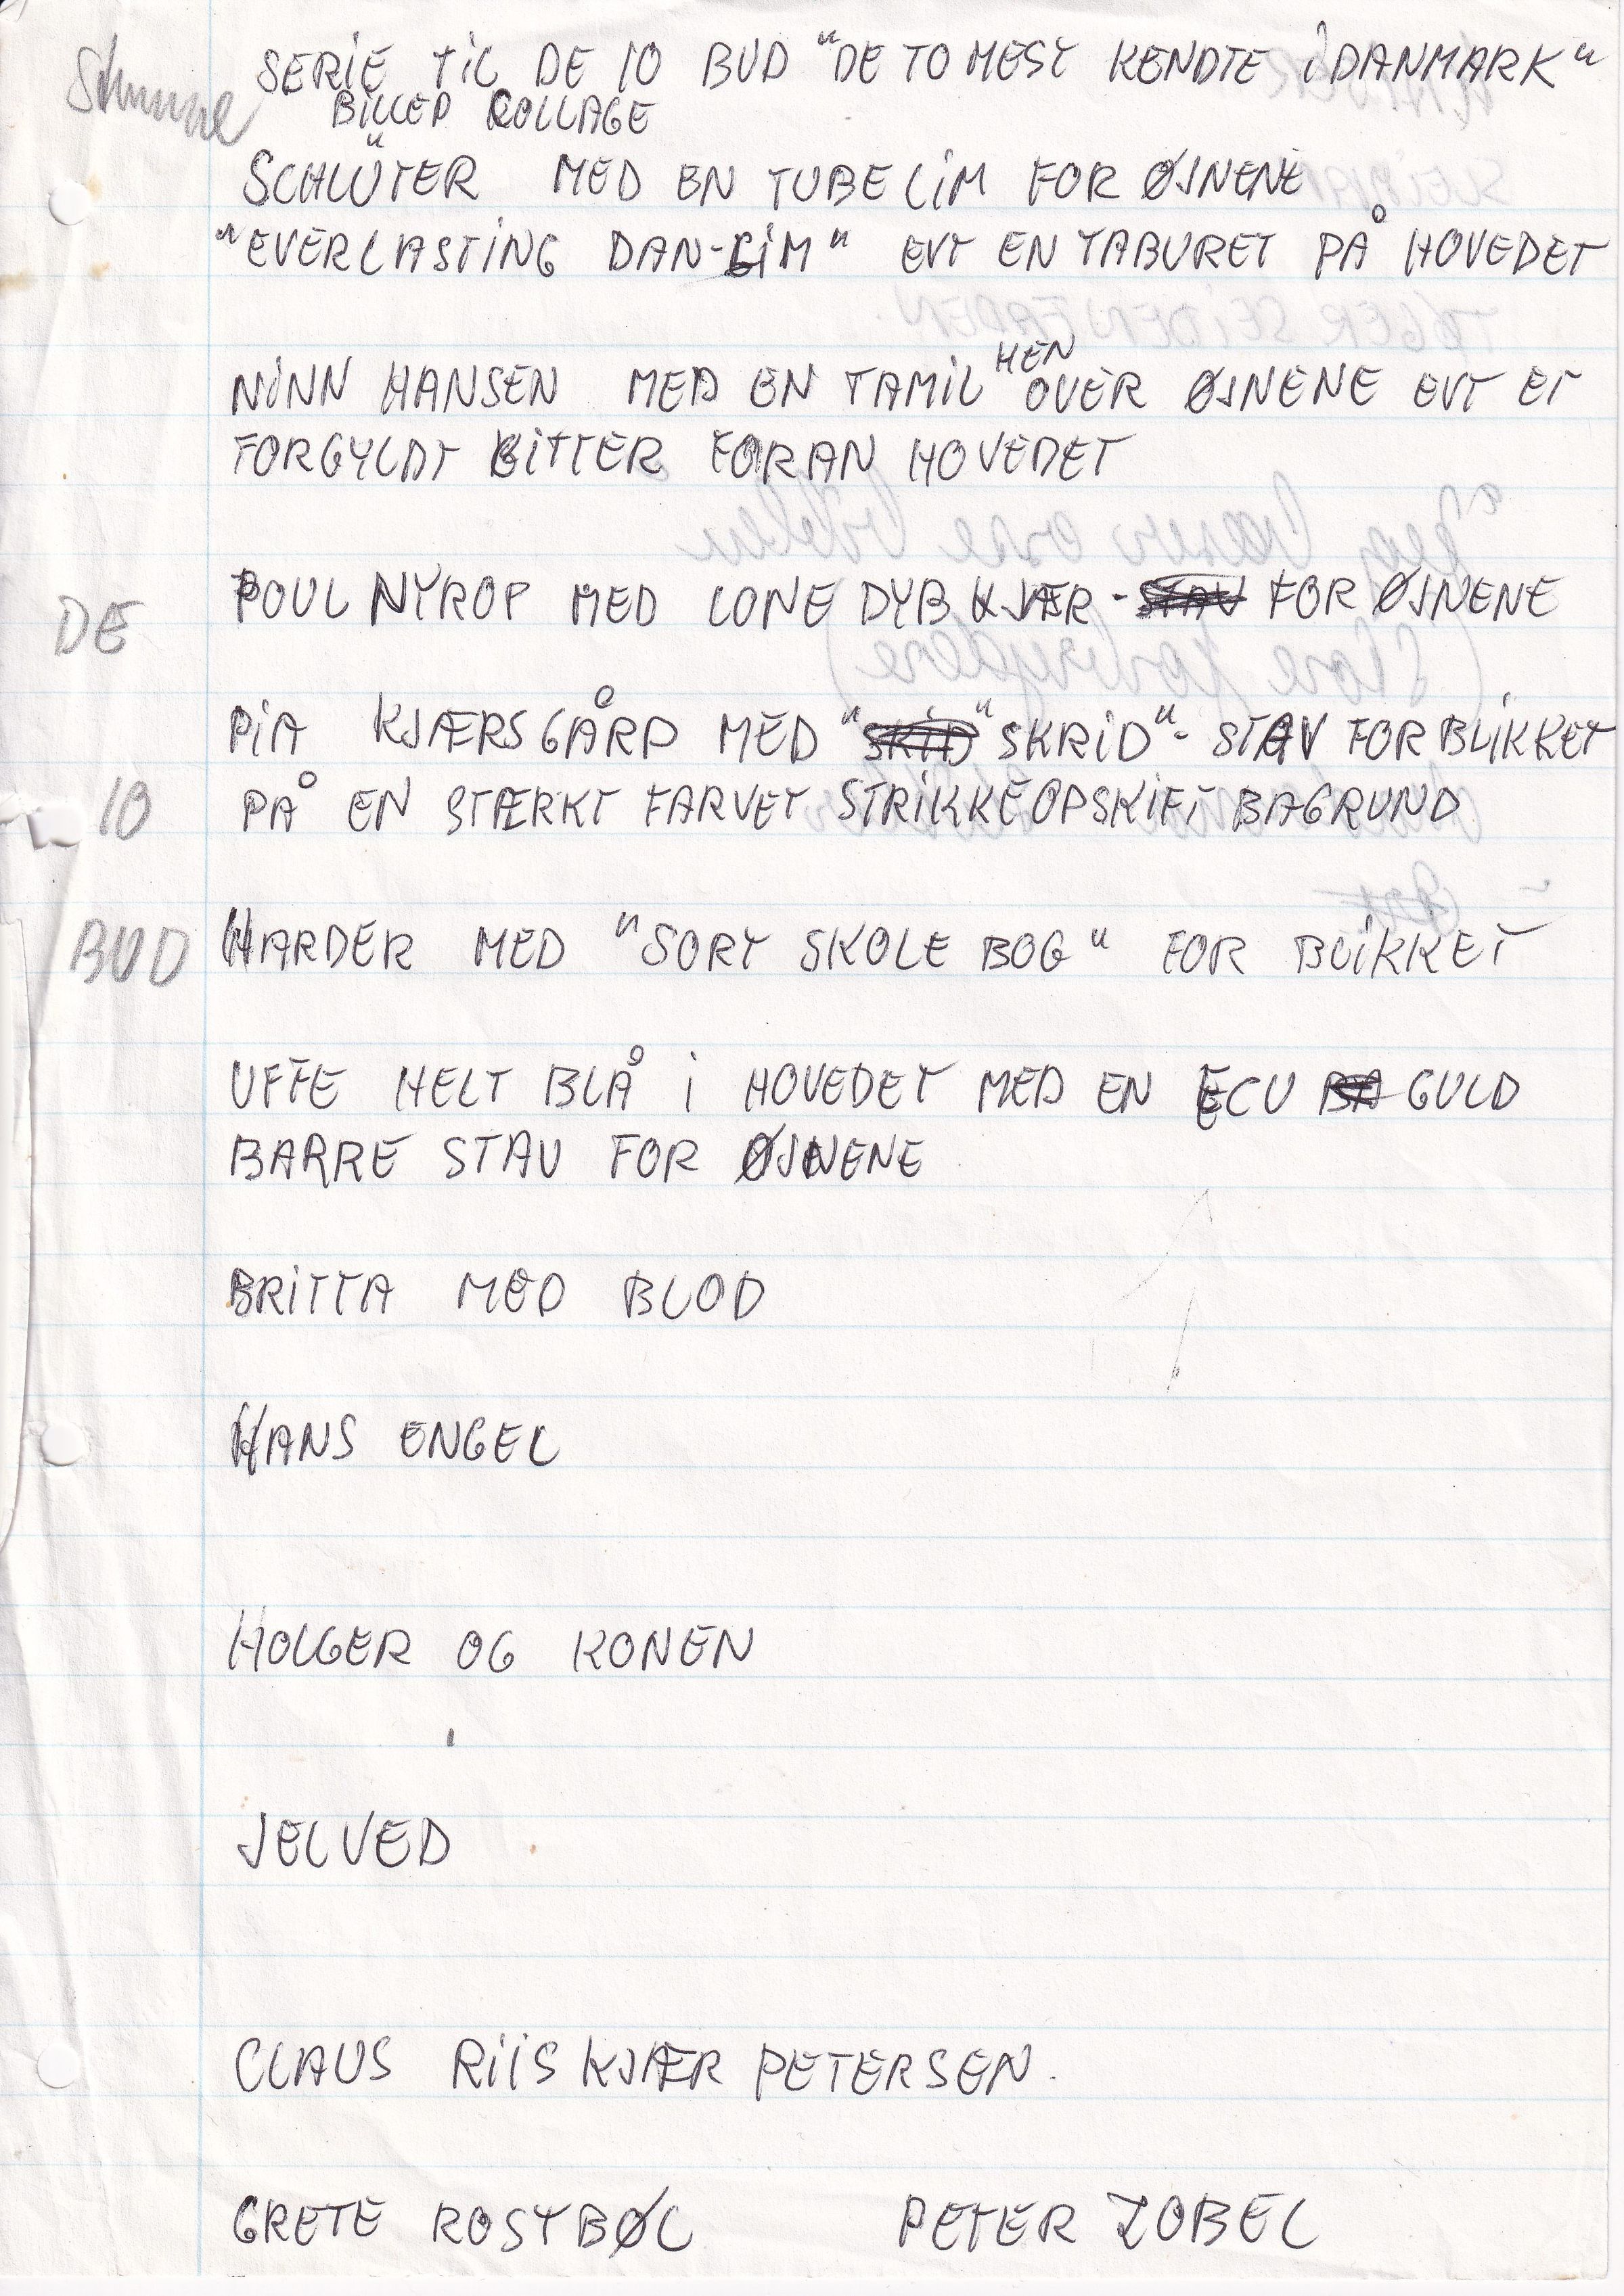 SERIE TIL DE 10 BUD "DE TO MEST KENDTE I DANMARK"
BILLED KOLLAGE
SCHLÜTER MED EN TUBE LIM FOR ØJNENE
"EVERLASTING DAN-LIM" EVT EN TABURET PÅ HOVEDET
NINN HANSEN MED EN TAMIL HEN OVER ØJNENE EVT ET
FORGYLDT GITTER FORAN HOVEDET
DE
POUL NYROP MED LONE DYBKJÆR - STAV FOR ØJNENE
PIA KJÆRSGÅRD MED "SKID" SKRID"- STAV FOR BLIKKET
10
PÅ EN STÆRKT FARVET STRIKKEOPSKIFT BAGRUND
BUD
HARDER MED "SORT SKOLE BOG" FOR BLIKKET
UFFE HELT BLÅ I HOVEDET MED EN ECU BA GULD
BARRE STAV FOR ØJNENE
BRITTA MED BLOD
HANS ENGEL
HOLGER OG KONEN
JELVED
CLAUS RIISKJÆR PETERSEN.
GRETE ROSTBØL PETER ZOBEL